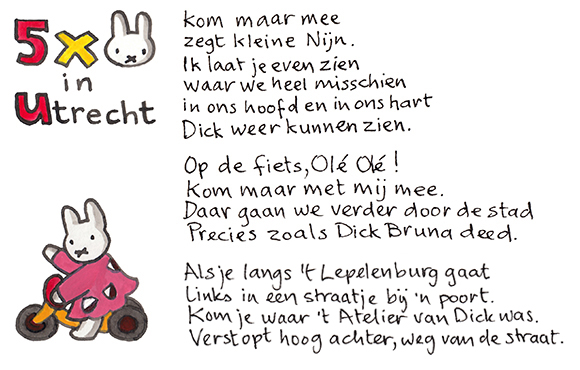 5x
in
Utrecht
kom maar mee
zegt kleine Nijn.
Ik laat je even zien
waar we heel misschien
in ons hoofd en in ons hart
Dick weer kunnen zien.
Op de fiets, Olé Olé!
Kom maar met mij mee.
Daar gaan we verder door de stad
Precies zoals Dick Bruna deed.
Als je langs 't Lepelenburg gaat
Links in een straatje bij 'n poort.
Kom je waar 't Atelier van Dick was.
Verstopt hoog achter, weg van de straat.